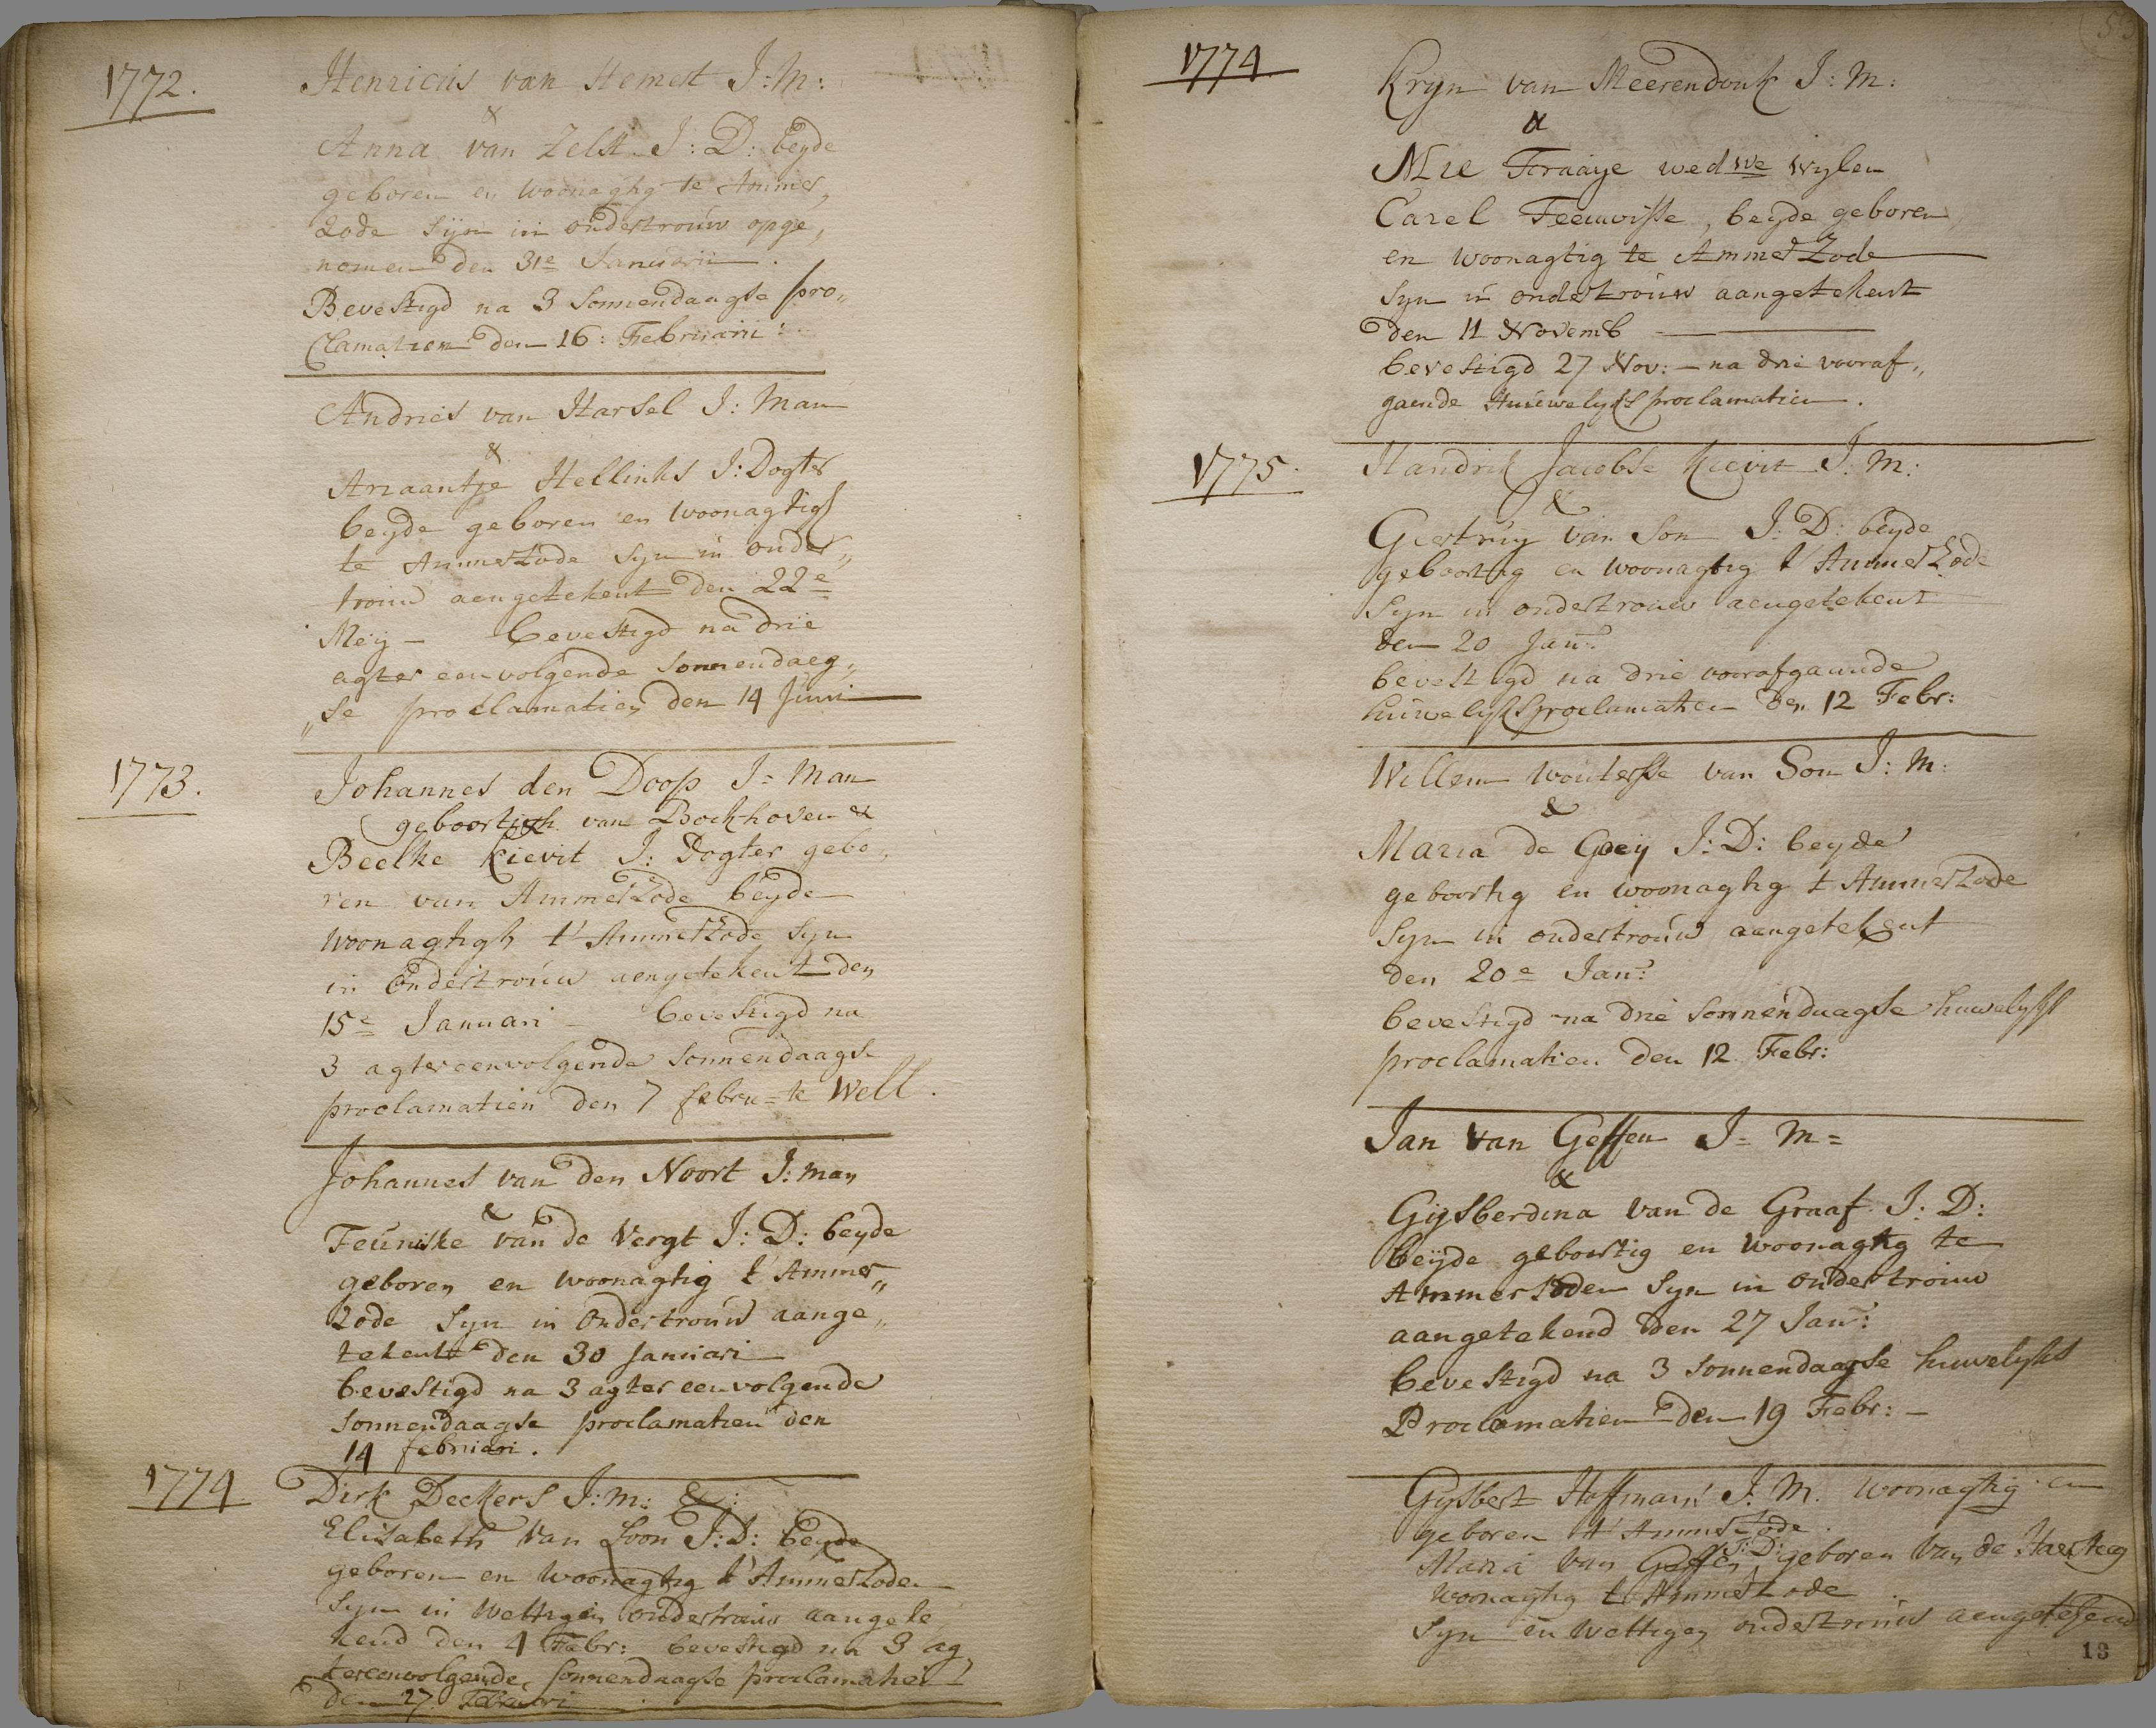 1772.
Henricus van Hemert J: M:
&
Anna van Zelst J: D: beyde
geboren en woonagtig te Ammer,
zode sijn in ondertrouw opge,
nomen den 31e Januarii.
Bevestigd na 3 sonnendaagse pro„
clamatien den 16: Februarii:
Andries van Harsel J: Man
&
Ariaantje Hellinks J: Dogter
beyde geboren en woonagtig
te Ammerzode syn in onder„
trouw aengetekent den 22e
Meij — bevestigd na drie
agter een volgende sonnendaeg„
„se proclamatien den 14 Juni
1773.
Johannes den Doop J= Man
geboortigh van Bockhoven &
&
Beelke Kievit J: Dogter gebo,
ren van Ammerzode beyde
woonagtigh t' Ammerzode syn
in ondertrouw aengetekent den
15e Januari — bevestigd na
3 agtereenvolgende sonnendaagse
proclamatien den 7 febru= te Well.
Johannes van den Noort J: man
&
Teuniske van de Vergt J: D: beyde
geboren en woonagtig t' Ammer„
zode syn in ondertrouw aange„
tekent den 30 Januari
bevestigd na 3 agter een volgende
sonnendaagse proclamatien den
14 februari.
1774
Dirk Deckers J: m: &:
Elisabeth van Loon J: D: beyde
geboren en woonagtig t' Ammerzoden
syn in wettigen ondertrouw aangete
kend den 4 Febr: bevestigd na 3 ag
tereenvolgende sonnendaagse proclamatien
den 27 Februari
1774
Kryn van Meerendonk J: M:
&
Mie Fraaye wedwe wylen
Carel Teeuwisse, beyde geboren
en woonagtig te Ammerzode
syn in ondertrouw aangetekent
den 11 Novemb
bevestigd 27 Nov: — na drie vooraf„
gaende Huuwelyks proclamatien.
1775.
Handrik Jacobse Kievit J: M:
&
Geertruy van Son J: D: beyde
geboortig en woonagtig t' Ammerzode
syn in ondertrouw aengetekent
den 20 Jan:
bevestigd na drie voorafgaande
huuwelyksproclamatien den 12 Febr:
Willem Wouterse van Son J: M:
&
Maria de Goeij J: D: beyde
geboortig en woonagtig t Ammerzode
syn in ondertrouw aengetekent
den 20e Jan:
bevestigd na drie sonnendaagse huwelyks
proclamatien den 12 Febr:
Jan van Geffen J= M=
&
Gijsberdina van de Graaf J: D:
beijde geboortig en woonagtig te
Ammersoden syn in ondertrouw
aangetekend den 27 Jan:
bevestigd na 3 sonnendaagse huwelyks
Proclamatien den 19 Febr: —
Gysbert Hoffmans J: M. woonagtig en
geboren t' Ammerzode.
Maria van Geffen J: D: geboren van de Haersteeg
woonagtig t Ammerzode
syn in wettigen ondertrouw aengetekend
13